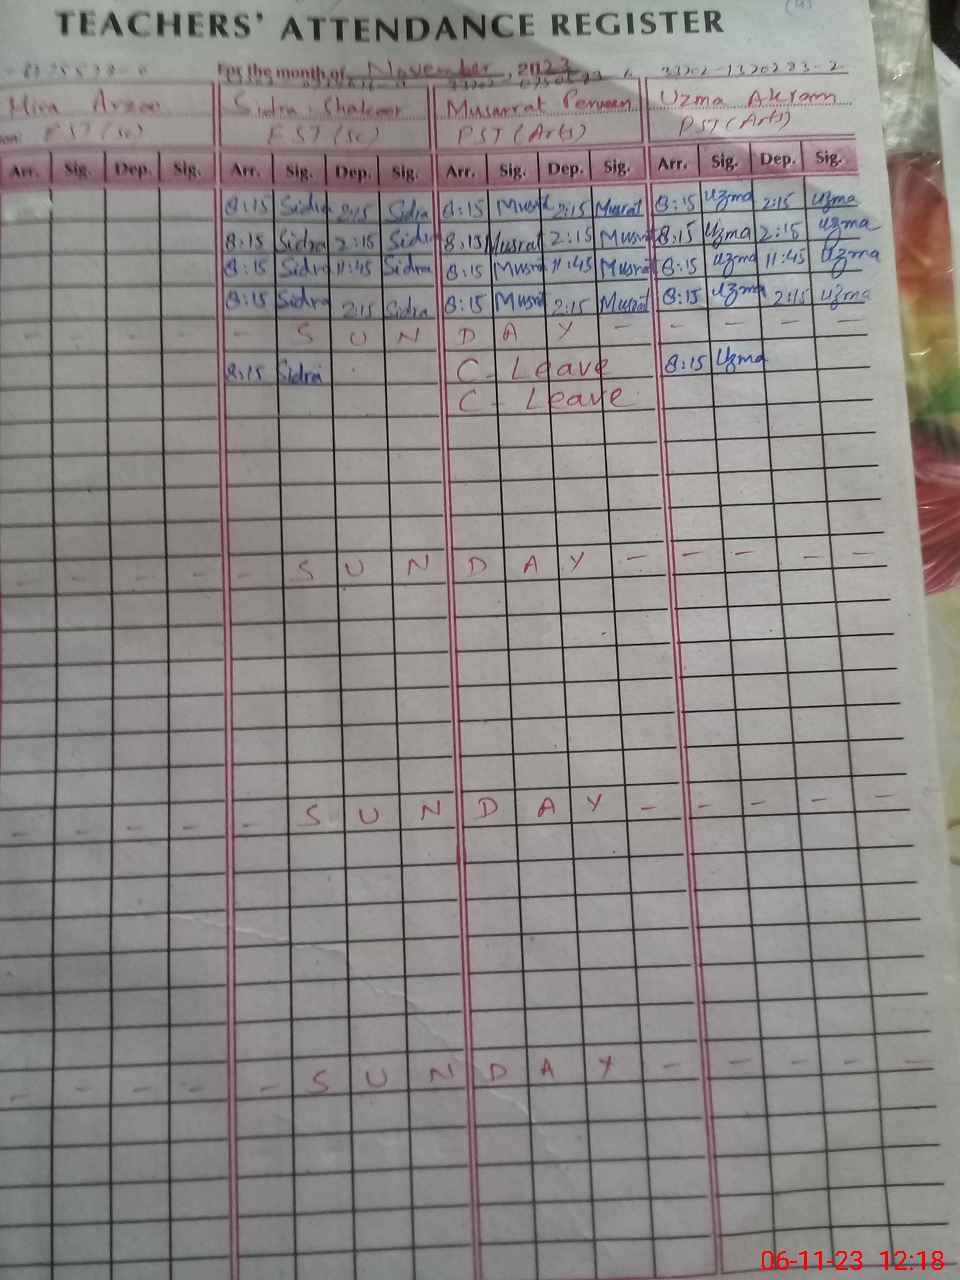 TEACHERS' ATTENDANCE REGISTER
For the month of November, 2023
33202-1320223-2
Hira Arzoo Sidra Shakoor Musarrat Perveen Uzma Akram
EST (Sc) EST (Sc) PST (Arts) PST (Arts)
Arr. Sig. Dep. Sig. Arr. Sig. Dep. Sig. Arr. Sig. Dep. Sig. Arr. Sig. Dep. Sig.
8:15 Sidra 2:15 Sidra 8:15 Musrat 2:15 Musrat 8:15 Uzma 2:15 Uzma
8:15 Sidra 2:15 Sidra 8:15 Musrat 2:15 Musrat 8:15 Uzma 2:15 Uzma
8:15 Sidra 11:45 Sidra 8:15 Musrat 11:45 Musrat 8:15 Uzma 11:45 Uzma
8:15 Sidra 2:15 Sidra 8:15 Musrat 2:15 Musrat 8:15 Uzma 2:15 Uzma
- - - - - S U N D A Y - - - - -
8:15 Sidra C - Leave 8:15 Uzma
C - Leave
- - - - - S U N D A Y - - - - -
- - - - - S U N D A Y - - - - -
- - - - - S U N D A Y - - - - -
06-11-23 12:18